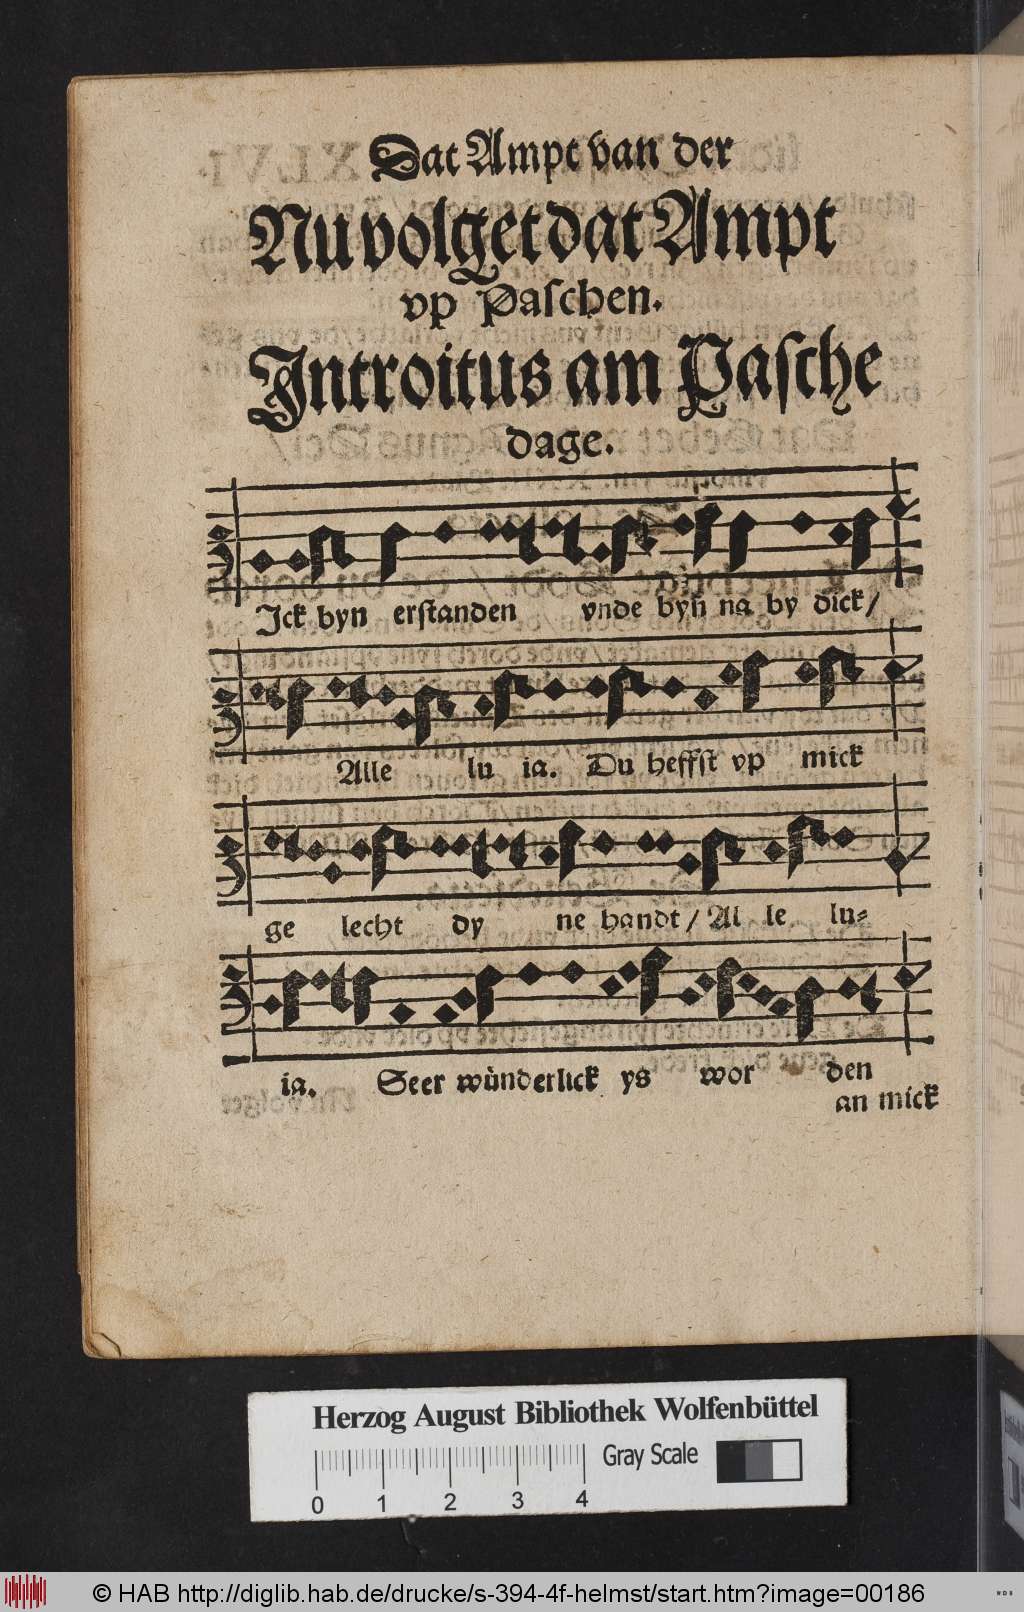 Dat Ampt van der
Nu volget dat Ampt
vp Paschen.
Introitus am Pasche
dage.
Ick byn erstanden vnde byn na by dick/
Alle lu ia. Du heffst vp mick
ge lecht dy ne handt/ Al le lu=
ia. Seer wünderlick ys wor den
an mick
Herzog August Bibliothek Wolfenbüttel
Gray Scale
0 1 2 3 4
© HAB http://diglib.hab.de/drucke/s-394-4f-helmst/start.htm?image=00186